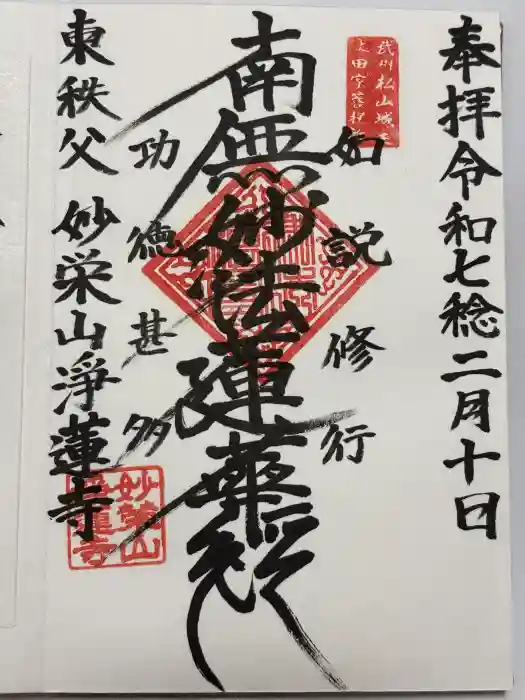 奉拝令和七稔二月十日
武州松山城主
上田家菩提寺
如説修行
南無妙法蓮華経
功徳甚多
東秩父 妙栄山浄蓮寺
妙栄山
浄蓮寺